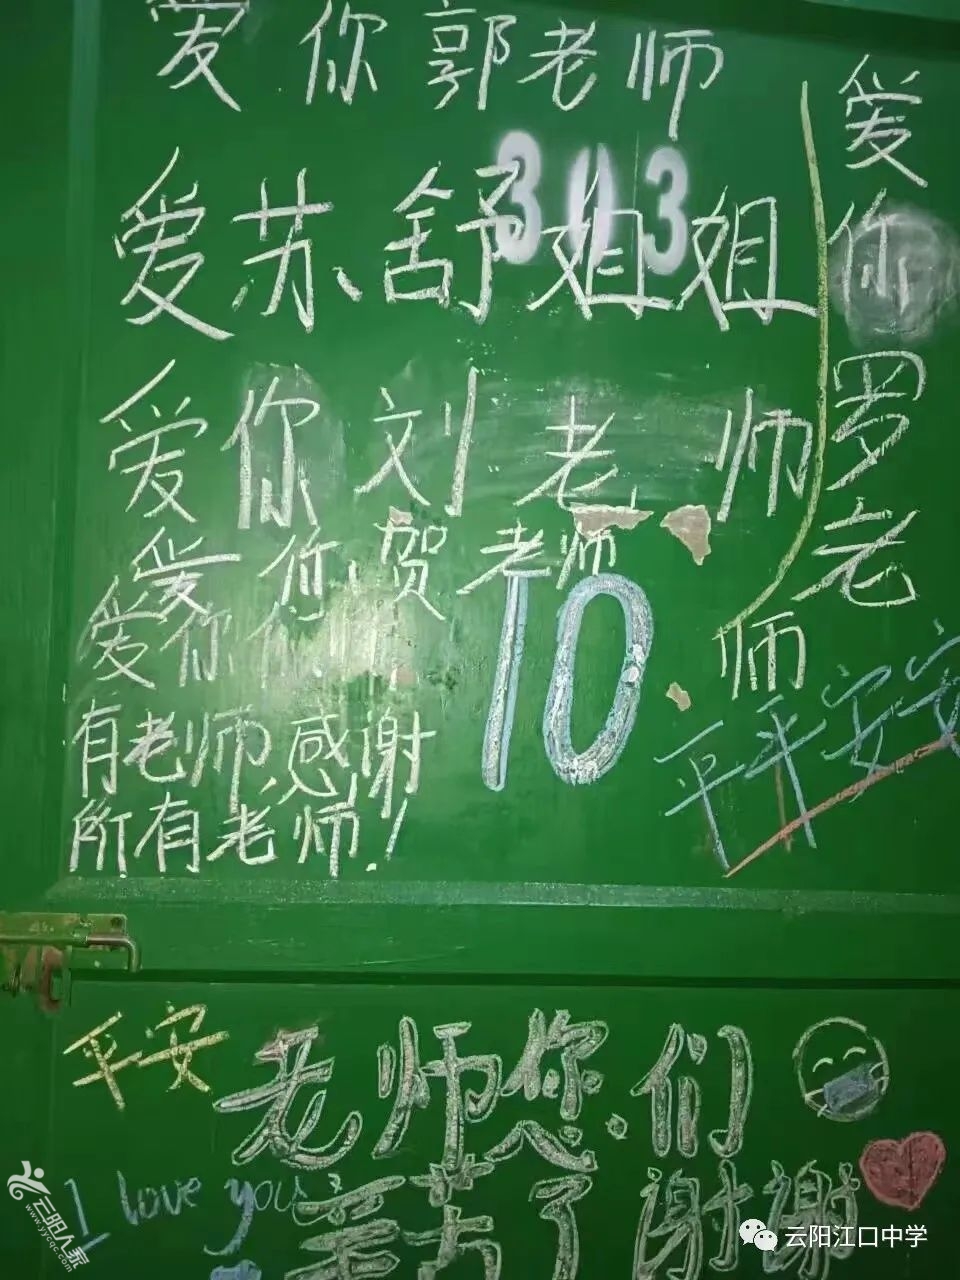 爱你郭老师
303
爱苏舒姐姐
爱你刘老师
爱你罗老师
爱你贺老师
爱你们
10
有老师,感谢
所有老师!
平平安安
平安
老师您们
辛苦了谢谢
I love you
云阳人家
www.yycqc.com
云阳江口中学